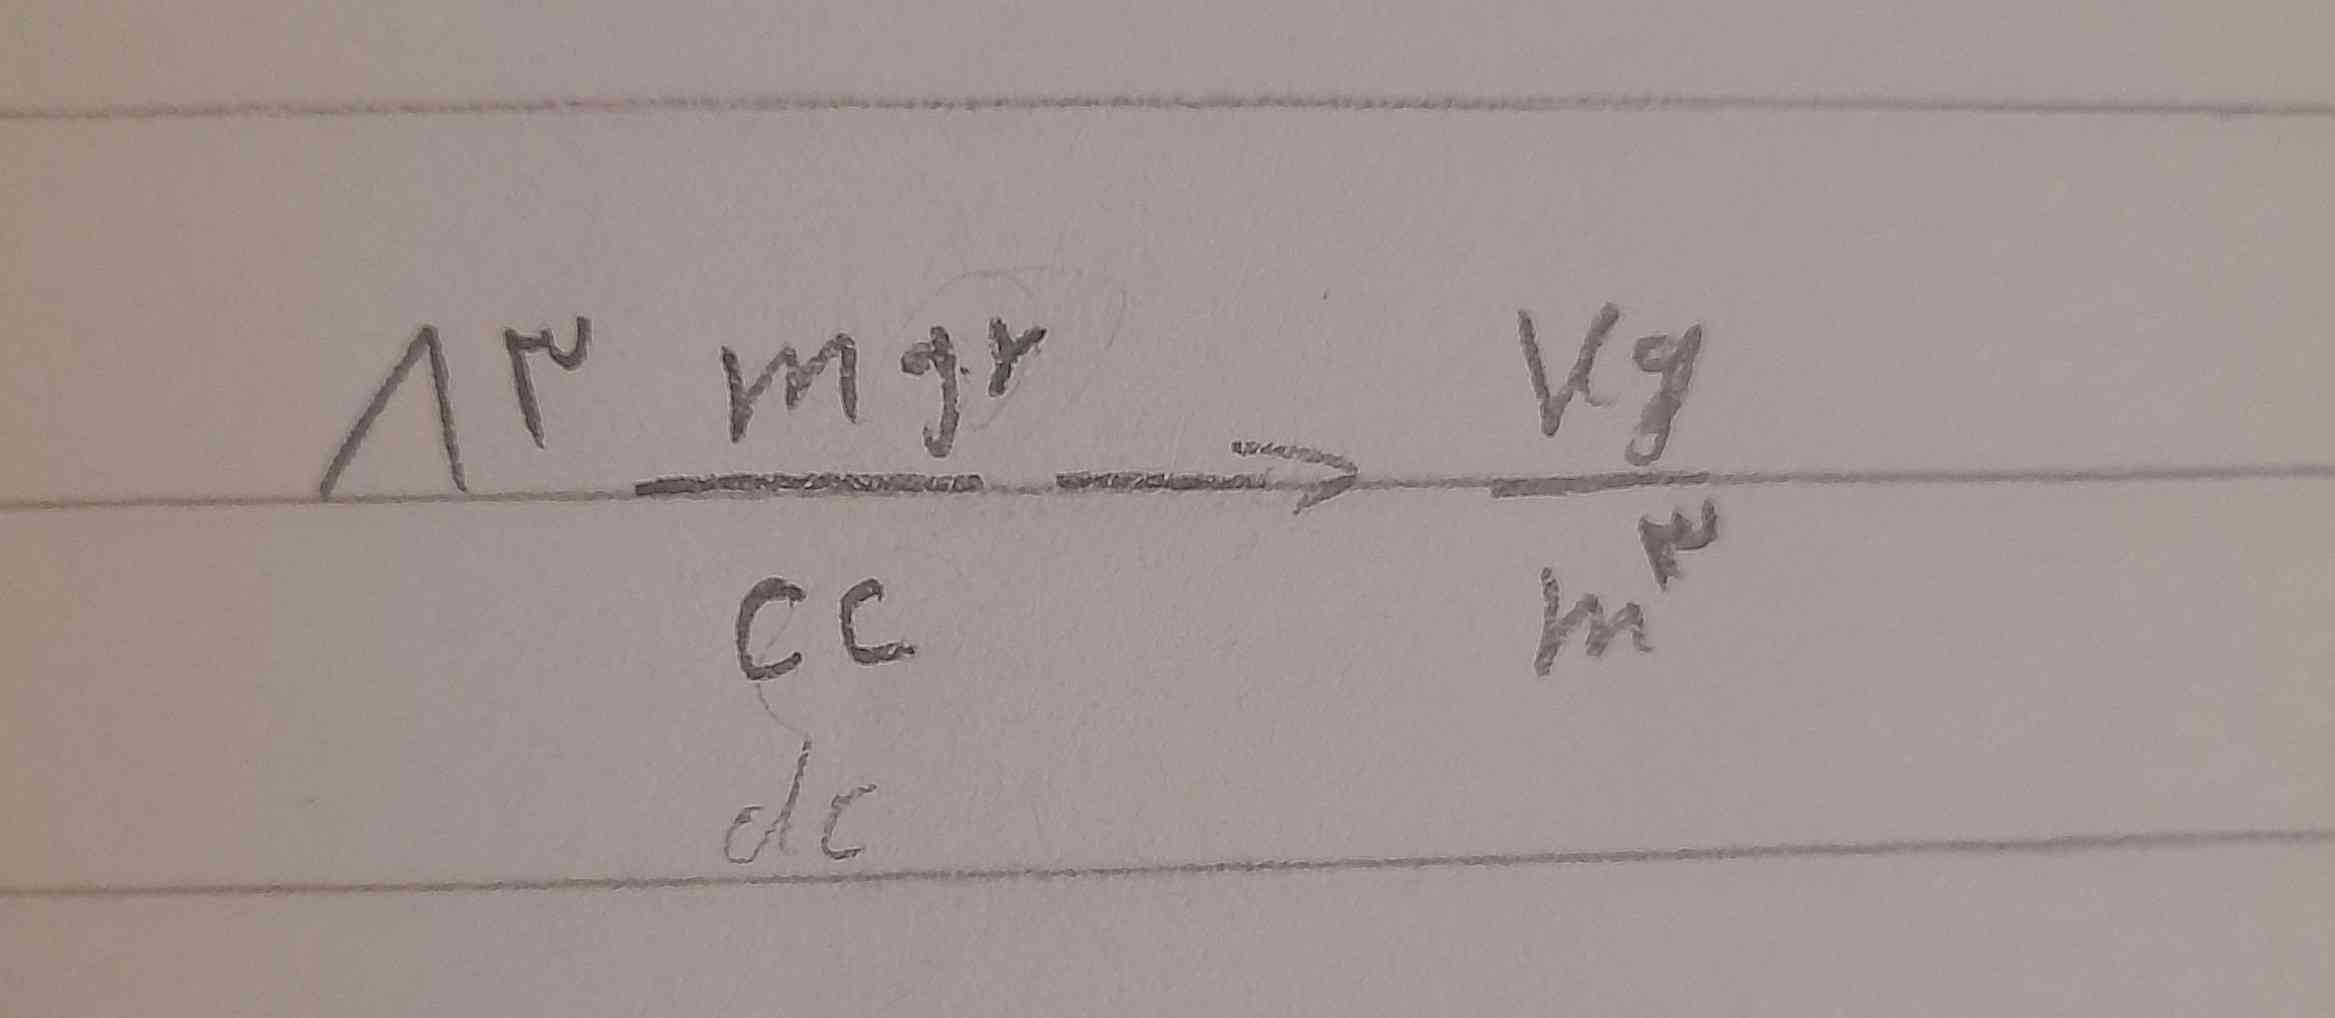 ۸۳ mgr/cc → kg/m³
dc